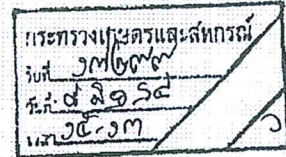 กระทรวงเกษตรและสหกรณ์
รับที่ ๑๗๒๗๗
วันที่ ๘ มิ๑ ๖๔
เวลา ๑๕.๑๓